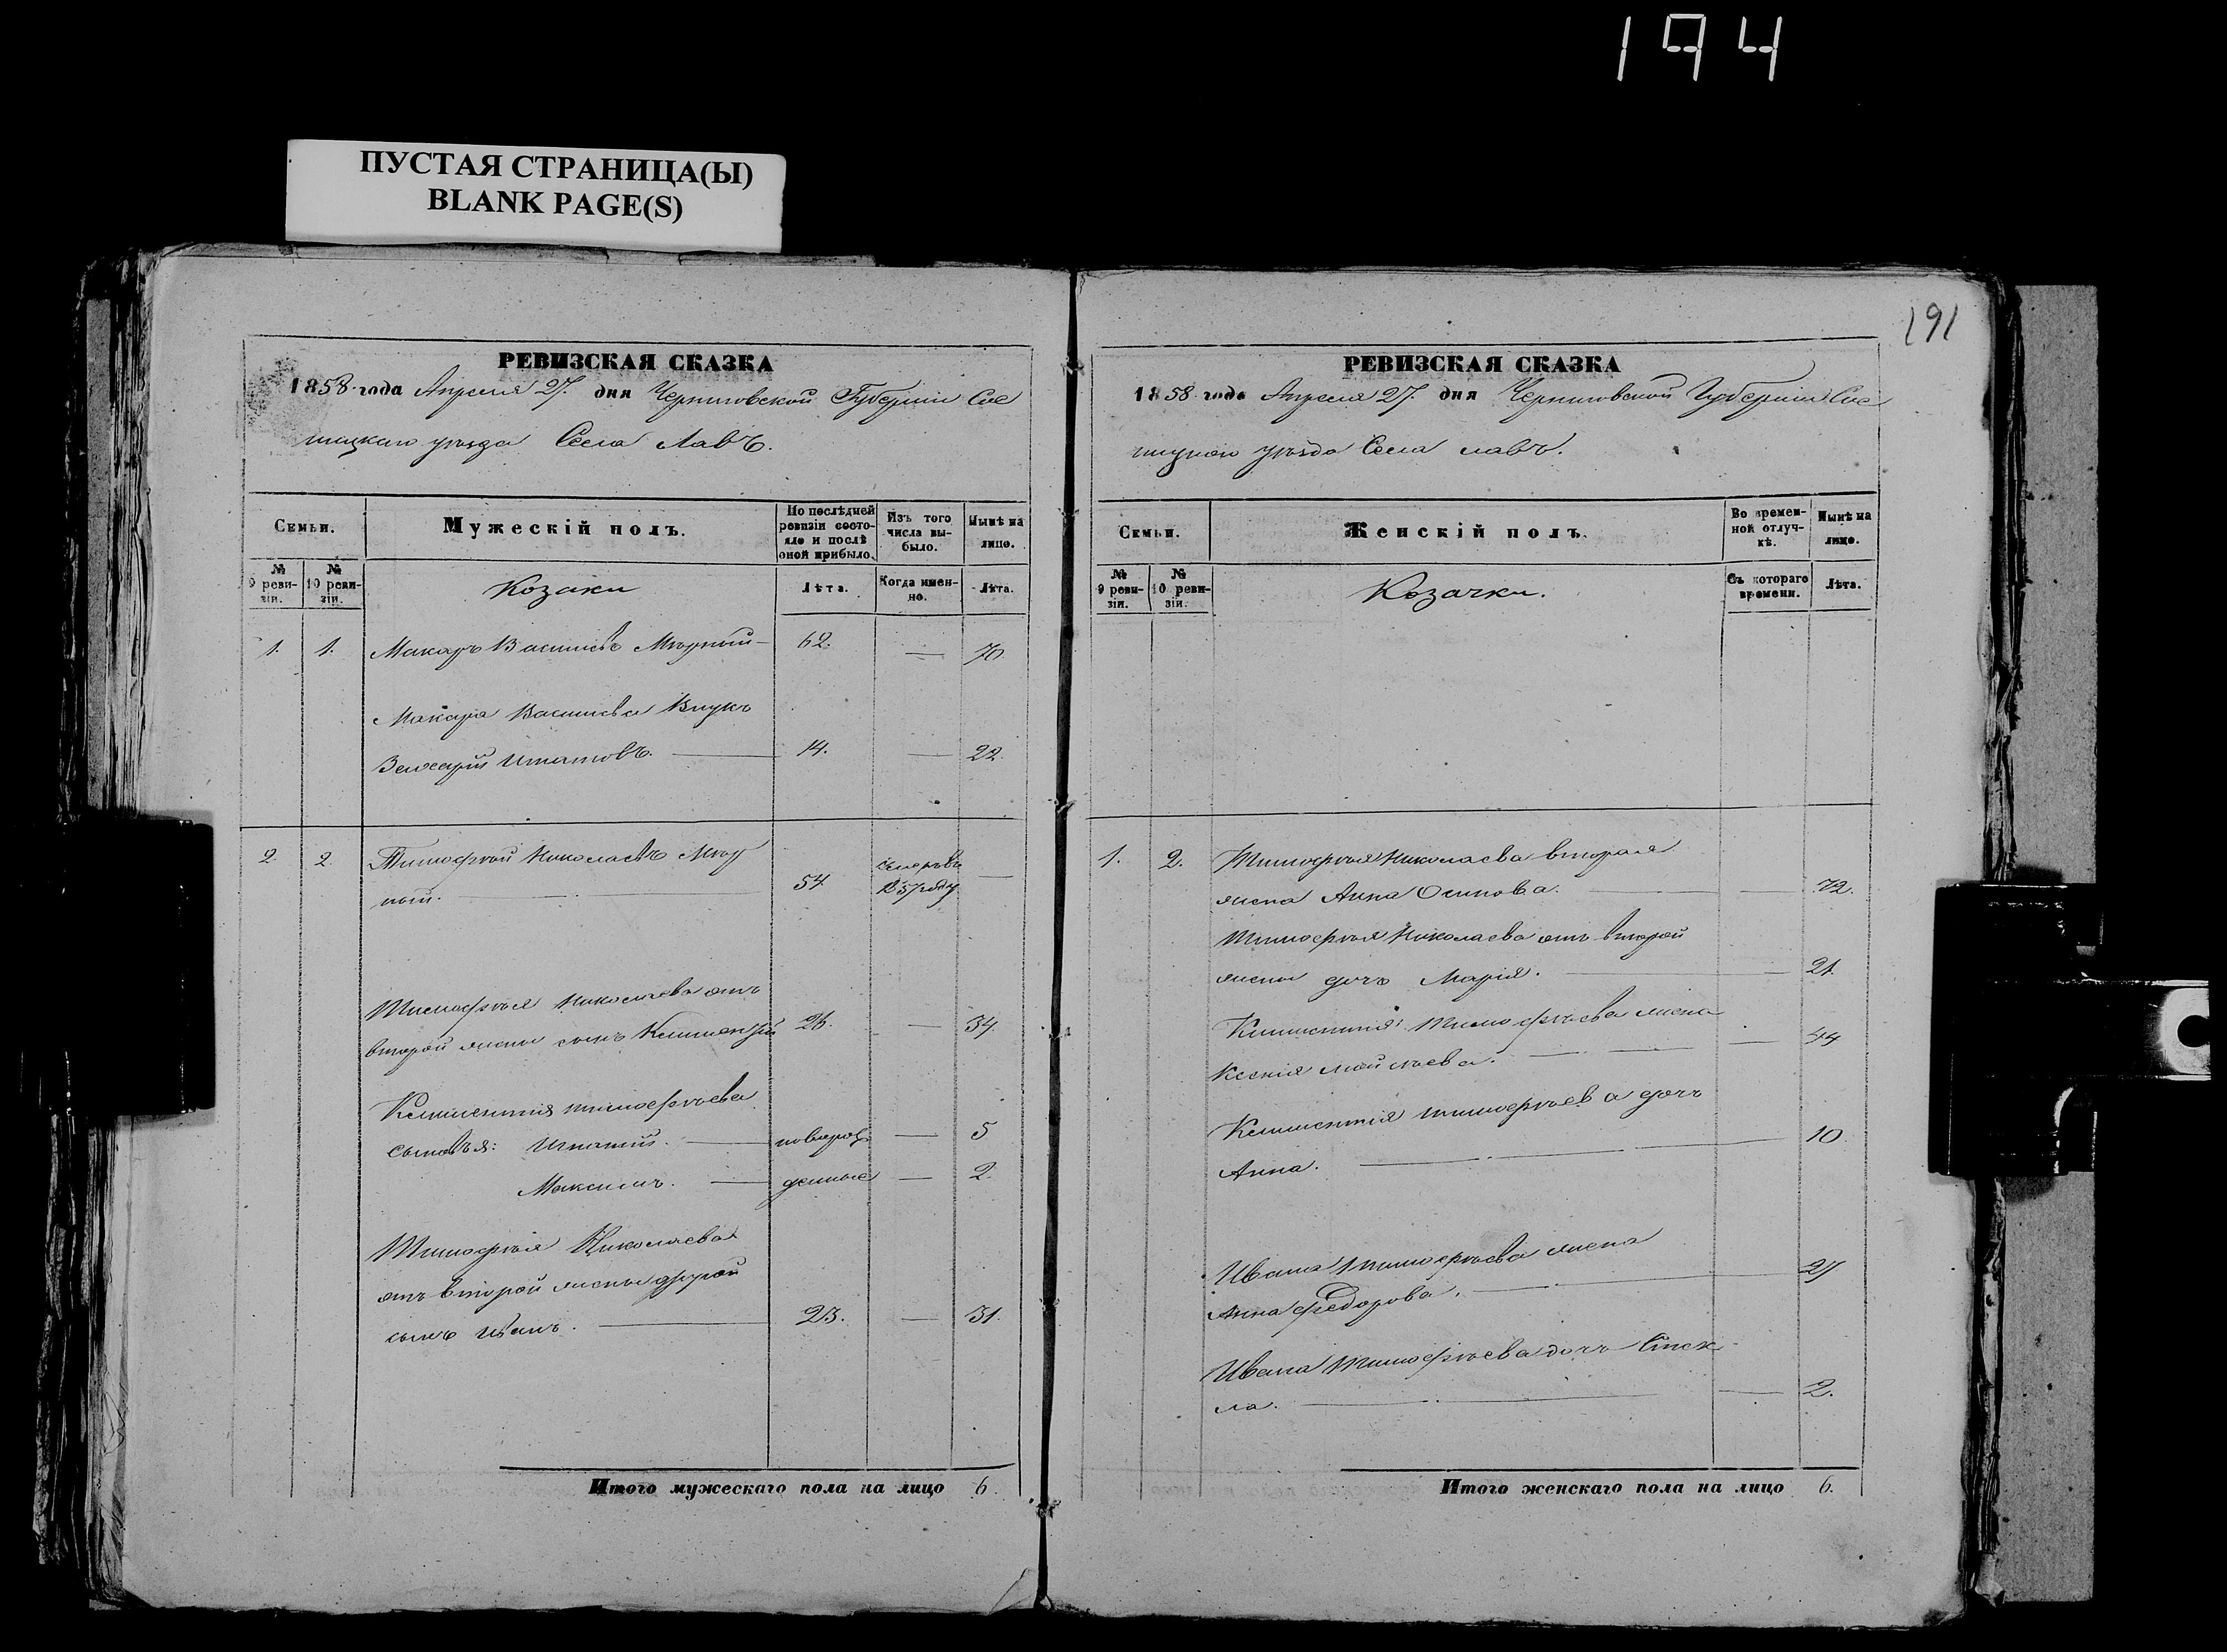 194
ПУСТАЯ СТРАНИЦА(Ы)
BLANK PAGE(S)
191
РЕВИЗСКАЯ СКАЗКА
1858 года Апреля 27. дня Черниговской Губерніи Сос
ницкаго уѣзда Села Лавъ.
Семьи.
Мужескій полъ.
По послѣдней ревизіи состояло и послѣ оной прибыло.
Изъ того числа выбыло.
Нынѣ на лицо.
№ 9 ревизіи.
№ 10 ревизіи.
Козаки
Лѣта.
Когда именно.
Лѣта.
1. 1. Макаръ Васильевъ 62. — 70.
Макара Васильева Внукъ
Захарій Игнатовъ. — 14. — 22.
2. 2. Тимофѣй Николаевъ
ный. — 54. умеръ въ 1857 году —
Тимофѣя Николаева отъ
второй жены сынъ Климентій 26. — 34.
Климентія Тимофѣева
сыновья: Игнатій. — новорож — 5
Максимъ. — денные — 2.
Тимофѣя Николаева
отъ второй жены другой
сынъ Иванъ. — 23. — 31.
Итого мужескаго пола на лицо 6.
РЕВИЗСКАЯ СКАЗКА
1858 года Апреля 27. дня Черниговской Губерніи Сос
ницкаго уѣзда Села лавъ.
Семьи.
Женскій полъ.
Во временной отлучкѣ.
Нынѣ на лицо.
№ 9 ревизіи.
№ 10 ревизіи.
Козачки.
Съ котораго времени.
Лѣта.
1. 2. Тимофѣя Николаева вторая
жена Анна Осипова. — — 72.
Тимофѣя Николаева отъ второй
жены дочь Марія. — — 21.
Климентія Тимофѣева жена
Ксенія — — 44
Климентія Тимофѣева дочь
Анна. — 10
Ивана Тимофѣева жена
Анна Федорова. — 27
Ивана Тимофѣева дочь Фек
ла. — — 2.
Итого женскаго пола на лицо 6.